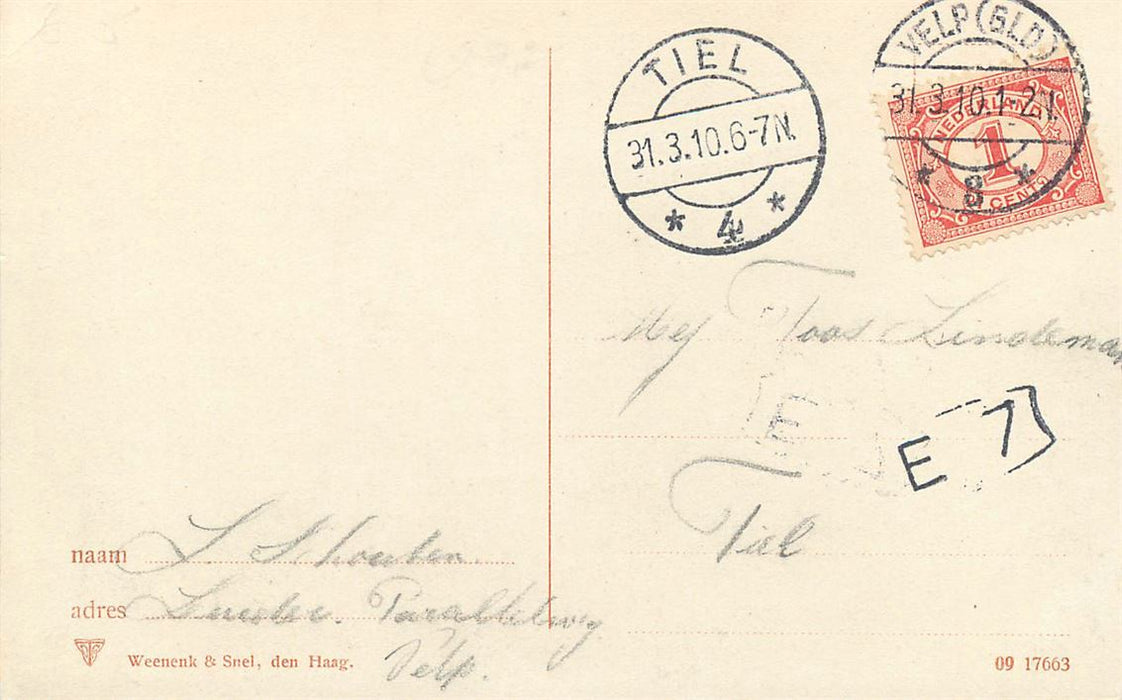 TIEL
31.3.10.6-7N.
* 4 *
VELP (GLD)
31.3.10.1-2N.
* 8 *
NEDERLAND
1
CENT
Mej Toos Lindeman
E
E 7
Tiel
naam S. Schouten
adres Parallelweg
Velp.
Weenenk & Snel, den Haag.
09 17663